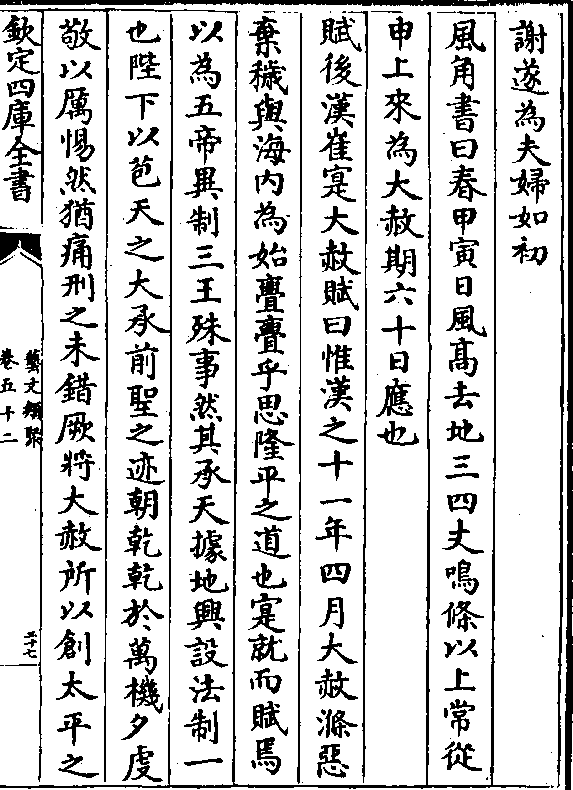 謝遂為夫婦如初
風角書曰春甲寅日風髙去地三四丈鳴條以上常從
申上來為大赦期六十日應也
賦後漢崔寔大赦賦曰惟漢之十一年四月大赦滌惡
棄穢與海内為始亹亹乎思隆平之道也寔就而賦焉
以為五帝異制三王殊事然其承天據地興設法制一
也陛下以苞天之大承前聖之迹朝乾乾於萬機夕虔
敬以厲惕然猶痛刑之未錯厥將大赦所以創太平之
欽定四庫全書
藝文類聚
卷五十二
二十七